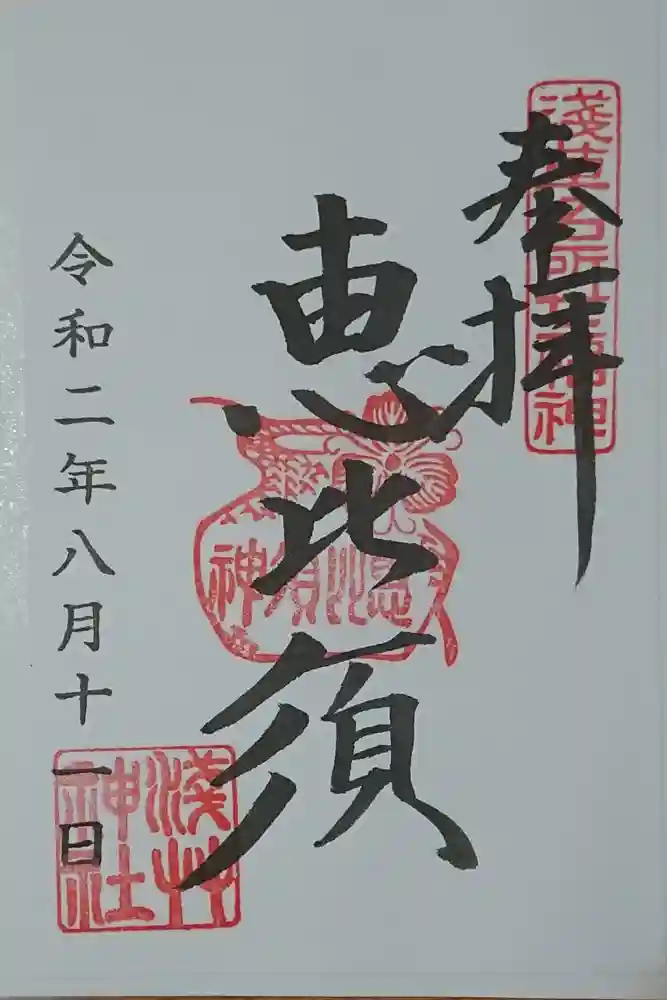 奉拝
淺草名所七福神
恵比須
恵比須神
令和二年八月十一日
淺草神社